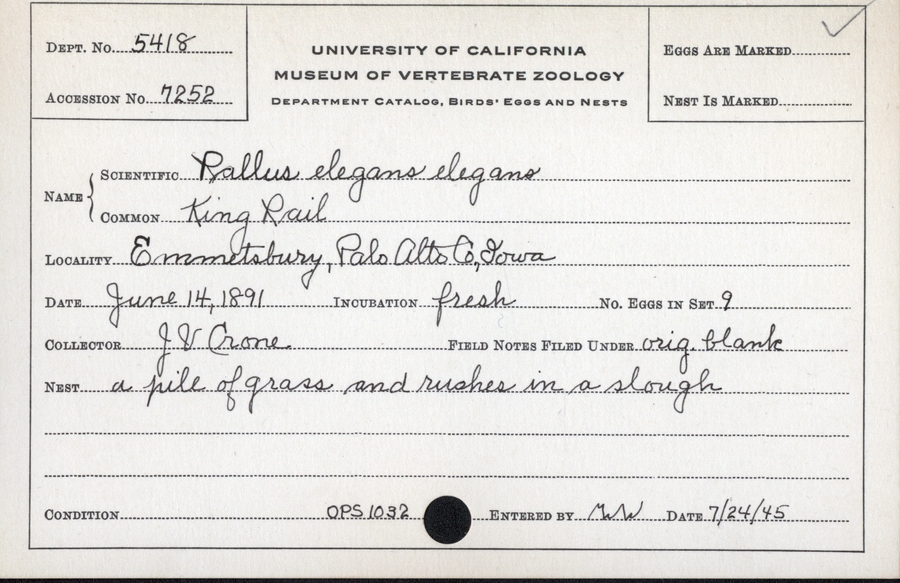 DEPT. NO. 5418
ACCESSION NO. 7252
UNIVERSITY OF CALIFORNIA
MUSEUM OF VERTEBRATE ZOOLOGY
DEPARTMENT CATALOG, BIRDS' EGGS AND NESTS
EGGS ARE MARKED
NEST IS MARKED
NAME
SCIENTIFIC Rallus elegans elegans
COMMON King Rail
LOCALITY Emmetsburg, Palo Alto Co, Iowa
DATE June 14, 1891 INCUBATION fresh NO. EGGS IN SET 9
COLLECTOR J V Crone. FIELD NOTES FILED UNDER orig. blank
NEST a pile of grass and rushes in a slough
CONDITION OPS 1032 ENTERED BY DATE 7/24/45